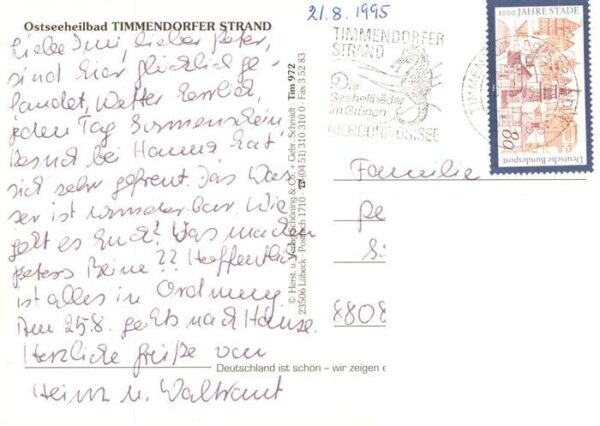 Ostseeheilbad TIMMENDORFER STRAND
Liebe Inni, lieber Peter,
sind hier glücklich ge-
landet, Wetter herrlich,
jeden Tag Sonnenschein
Besuch bei Hanna hat
sich sehr gefreut. Das Was-
ser ist wunderbar. Wie
geht es Euch? Was machen
Peters Beine?? Hoffentlich
ist alles in Ordnung
Am 25.8. gehts nach Hause.
Herzliche Grüße von
Heinz u. Waltraut
© Herst. u. Verlag Schöning & Co. + Gebr. Schmidt Tim 972
23506 Lübeck · Postfach 1710 · ☎ (04 51) 310 310 0 · Fax 3 52 83
Deutschland ist schön – wir zeigen e
21.8.1995
TIMMENDORFER
STRAND
Die
Seeheilbäder
im Grünen
NIENDORF/OSTSEE
1000 JAHRE STADE
80
Deutsche Bundespost
Familie
Pe
8808